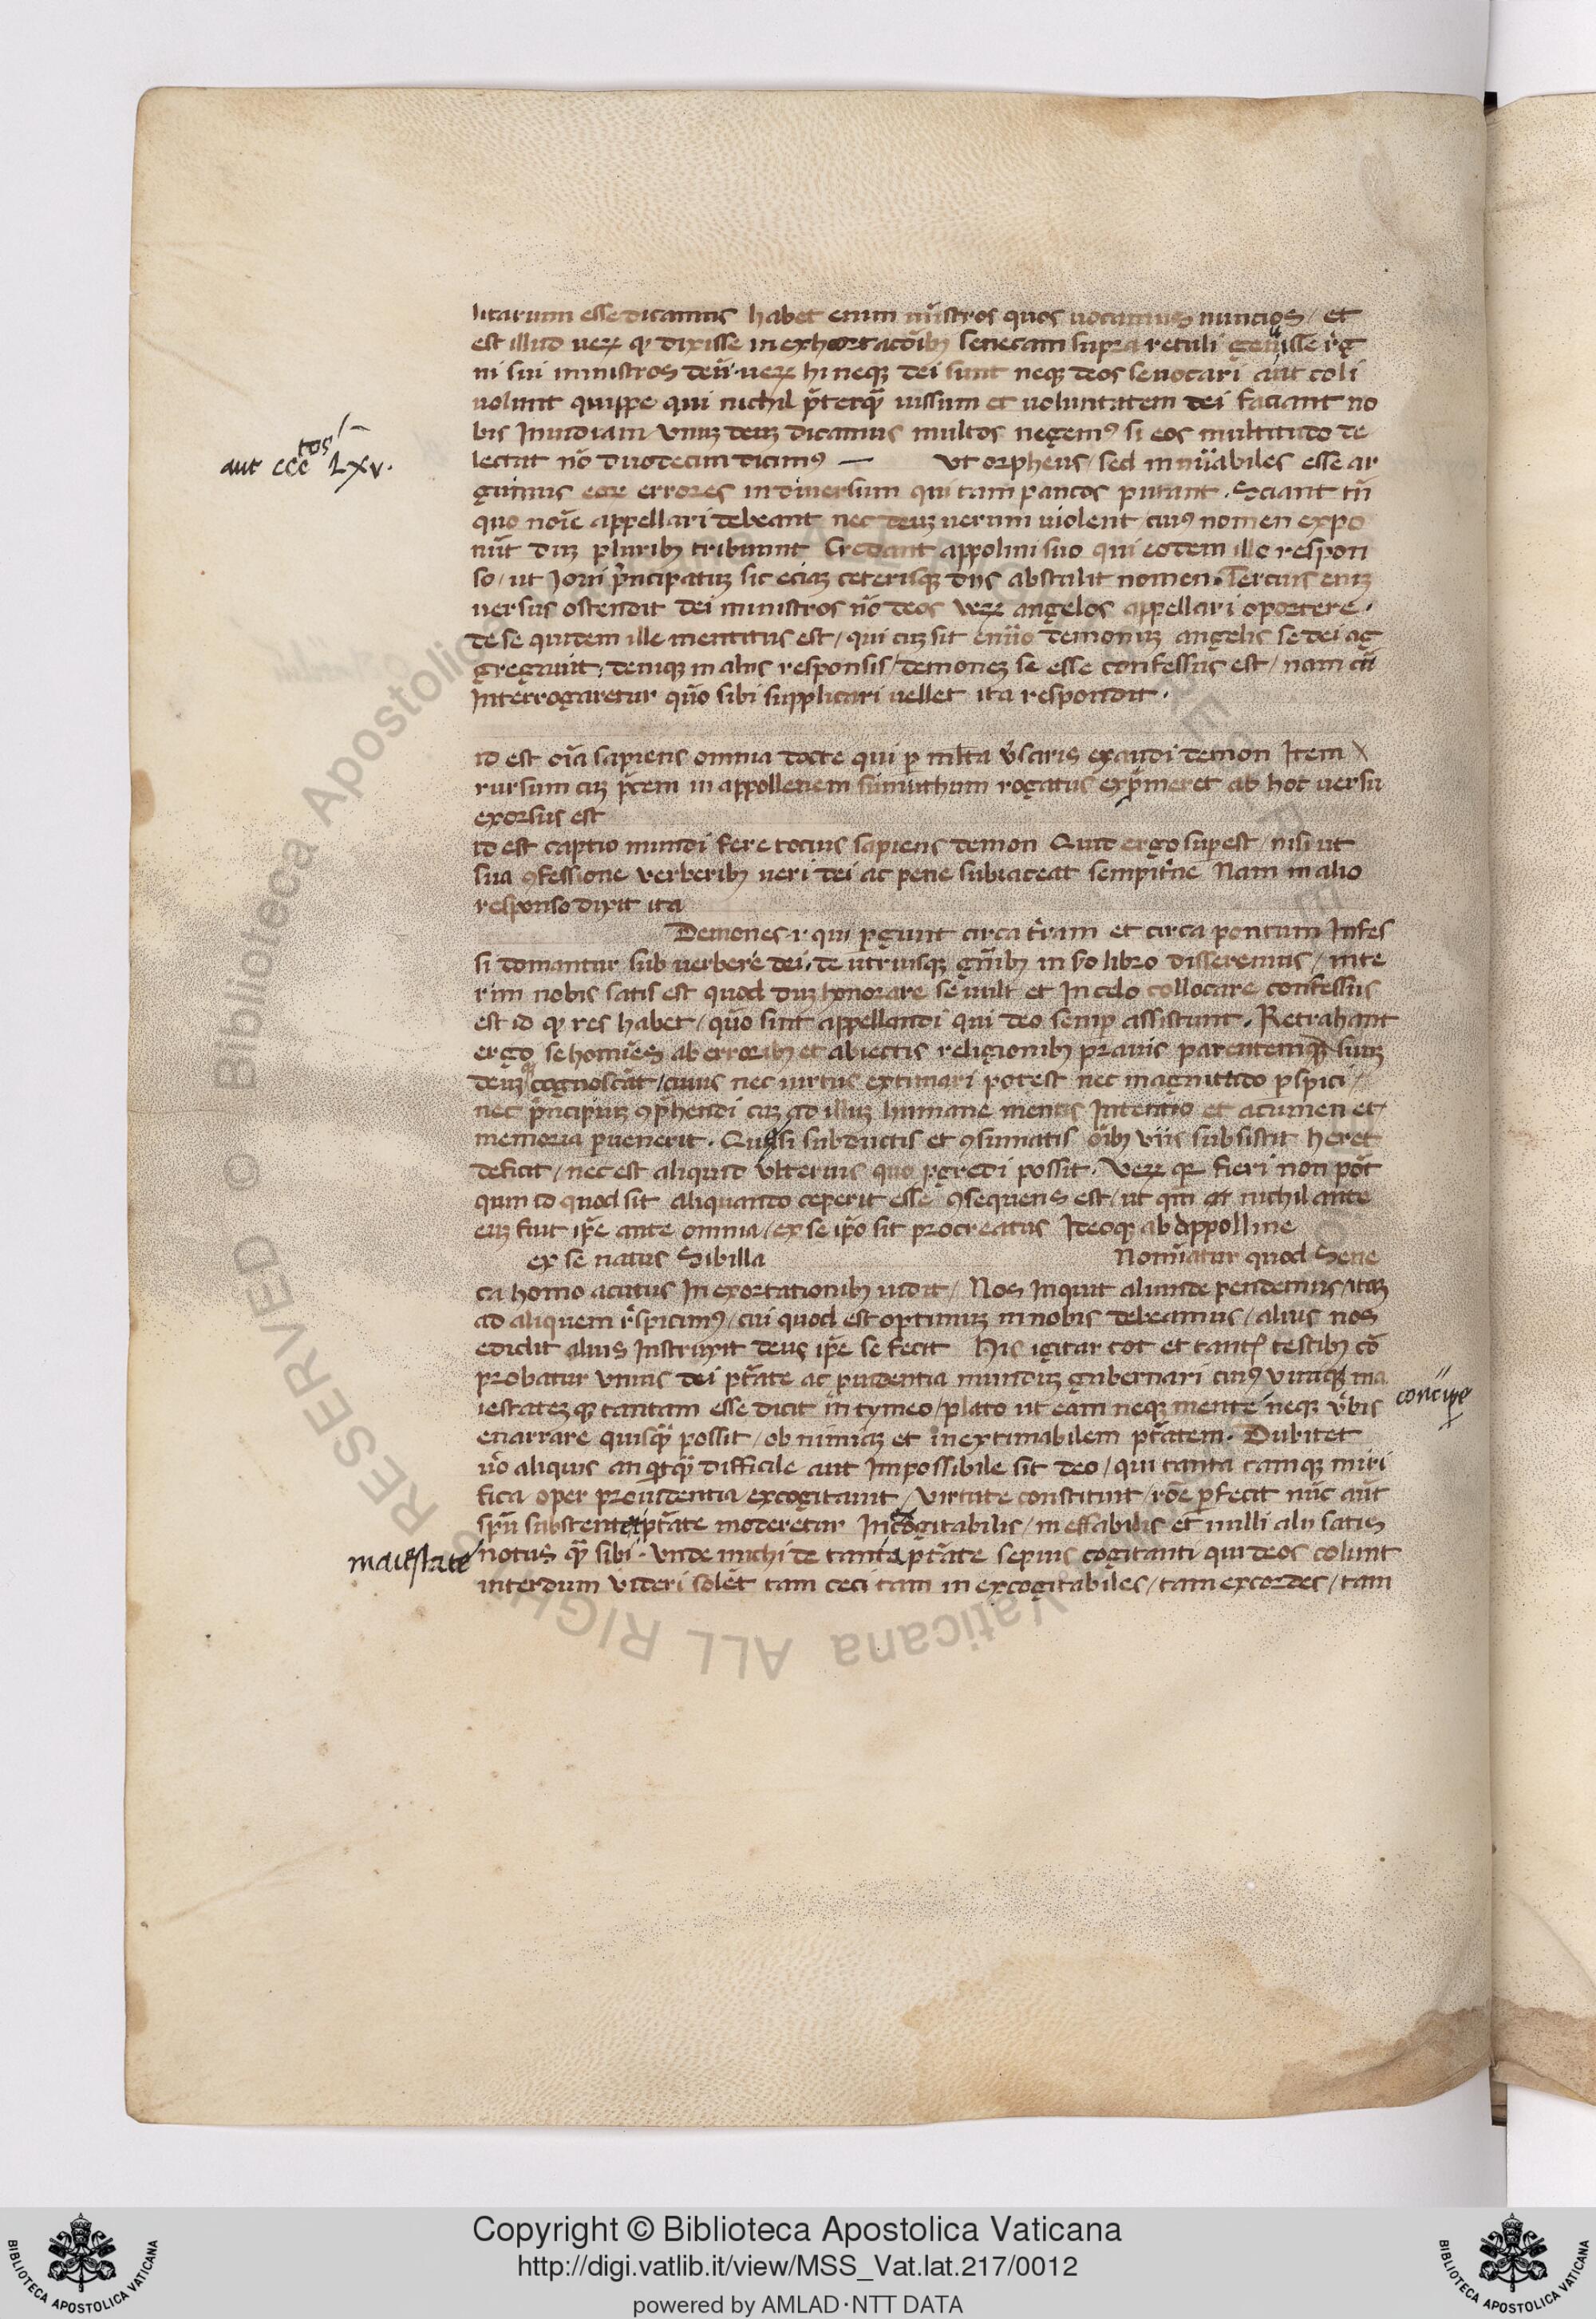 litarum esse dicamus habet enim mĩstros quos uocamus nuncios / et
est illud ueꝝ ꝙ dixisse in exhortacõibꝫ senecam supra retuli genuisse rͥg
ni sui ministros deũ · ueꝝ hi neqꝫ dei sunt neqꝫ deos se uocari aut coli
uolunt quippe qui nichil p̃terqꝫ iussum et uoluntatem dei faciant no
bis Inuidiam / vnuꝫ deuꝫ dicamus multos negemꝰ si eos multitudo de
aut ccc tos Lxv.
lectat nõ duodecim dicimꝰ — vt orpheus / sed innũabiles esse ar
guimus eoꝝ errores in diuersum qui tam paucos putant . Sciant tñ
quo noĩe appellari debeant nec deuꝫ uerum uiolent / cuiꝰ nomen expo
nũt duꝫ pluribꝫ tribuunt Credant appolini suo qui eodem illo respon
so / ut Ioui p̃ncipatuꝫ sic eciaꝫ ceterisqꝫ diis abstulit nomen . Tercius eniꝫ
uersus ostendit dei ministros nõ deos ueꝝ angelos appellari oportere .
de se quidem ille mentitus est / qui cuꝫ sit e nũo demonuꝫ angelis se dei ag
gregauit . deniqꝫ in aliis responsis / demoneꝫ se esse confessus est / nam cũ
Interrogaretur quõ sibi supplicari uellet ita respondit .
id est oĩa sapiens omnia docte qui ꝑ mlta v̾saris exaudi demon Item
rursum cuꝫ p̃cem in appollenem simithum rogatus exp̃meret ab hoc uersu
exorsus est
id est captio mundi fere tocius sapiens demon Quid ergo supest / nisi ut
sua ꝯfessione verberibꝫ ueri dei ac pene subiaceat sempitne Nam in alio
responso dixit ita
Demones · r qui ꝑgunt circa tͥram et circa pontum Infes
si domantur sub uerbere dei . de utriusqꝫ gñibꝫ in so libro disseremus / inte
rim nobis satis est quod duꝫ honorare se uult et In celo collocare confessus
est id ꝙ res habet / quõ sint appellandi qui deo semp assistunt . Retrahant
ergo se homies ab erroribꝫ et abiectis religionibꝫ prauis parentemqꝫ suuꝫ
deuꝫ cognoscãt / cuius nec uirtus extimari potest nec magnitudo ꝑspici /
nec p̃ncipiuꝫ ꝯp̃hendi cuꝫ ad illuꝫ humane mentis Intentio et acumen et
memoria ꝑuenerit . Quasi subductis et ꝯsumatis oĩbꝫ viis subsistit heret
deficit / nec est aliquid vlterius quo ꝓgredi possit . Veꝝ qꝛ fieri non põt
quin id quod sit aliquando ceperit esse ꝯsequens est / ut qñ nichil ante
euꝫ fuit ip̃e ante omnia / ex se ip̃o sit procreatus Ideoqꝫ ab Appolline
ex se natus Sibilla Nomĩatur quod Sene
ca homo acutus In exortationibꝫ uidit / Nos Inquit aliunde pendemus / itaqꝫ
ad aliquem rͥspicimꝰ / cui quod est optimuꝫ in nobis debeamus / alius nos
edidit alius Instruxit deus ip̃e se fecit His igitur tot et tantꝭ testibꝫ cõ
probatur vnius dei ptãte ac ꝓuidentia munduꝫ gubernari cuiꝰ vimqꝫ ma
iestateꝫqꝫ tantam esse dicit in tymeo / plato ut eam neqꝫ mente neqꝫ vͥbis concipe
enarrare quisqꝫ possit / ob nimiaꝫ et inextimabilem ptãtem . Dubitet
uͦo aliquis an qꝫqꝫ difficile aut Impossibile sit deo / qui tanta tamqꝫ miri
fica oper prouidentia / excogitauit / virtute constituit / rõe ꝑfecit nũc aũt
sp̃u substentet ptãte moderetur Incogitabilis / ineffabilis et nulli alii satis
maiestate
notus qꝫ sibi . vnde michi de tanta ptãte sepius cogitanti qui deos colunt
interdum videri solẽt tam ceci tam in excogitabiles / tam excordes / tam
Copyright © Biblioteca Apostolica Vaticana
http://digi.vatlib.it/view/MSS_Vat.lat.217/0012
powered by AMLAD·NTT DATA